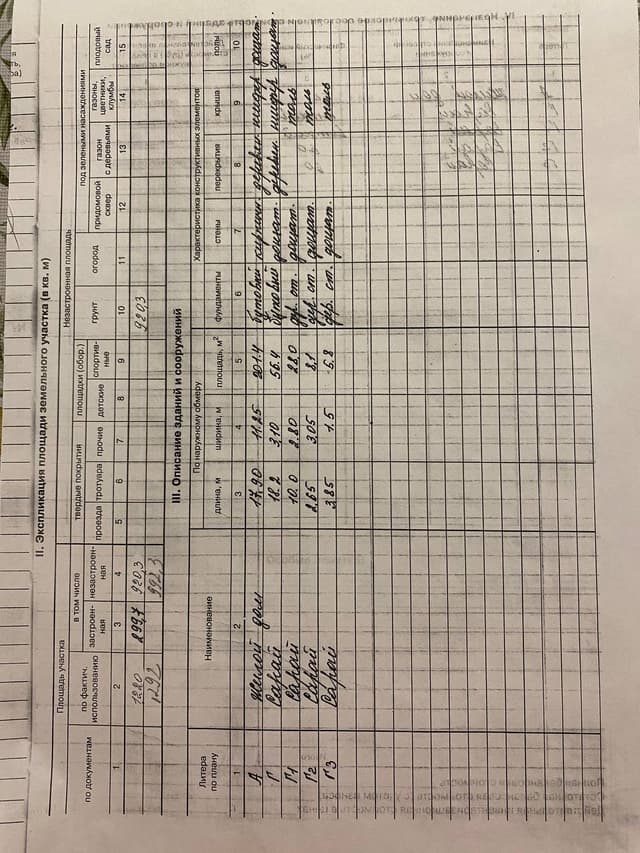 II. Экспликация площади земельного участка (в кв. м)
Площадь участка
Незастроенная площадь
по документам
по фактич. использованию
в том числе
застроенная
незастроенная
твердые покрытия
проезда
тротуара
прочие
площадки (обор.)
детские
спортивные
грунт
огород
под зелеными насаждениями
придомовой сквер
газон с деревьями
газоны, цветники, клумбы
плодовый сад
1 2 3 4 5 6 7 8 9 10 11 12 13 14 15
1220 299,7 920,3 920,3
1292 992,3
III. Описание зданий и сооружений
Литера по плану
Наименование
По наружному обмеру
длина, м
ширина, м
площадь, м²
Характеристика конструктивных элементов
фундаменты
стены
перекрытия
крыша
полы
1 2 3 4 5 6 7 8 9 10
А Жилой дом 17.90 11.25 201.4 бутовый кирпичн. деревян. шифер дощат.
Г Сарай 18.2 3,10 56.4 бутовый дощат. деревян. шифер дощат.
Г1 Сарай 10.0 2.80 28.0 дер. ст. дощат. толь
Г2 Сарай 2,65 3,05 8,1 дер. ст. дощат. толь
Г3 Сарай 3,85 1.5 5,8 дер. ст. дощат. толь